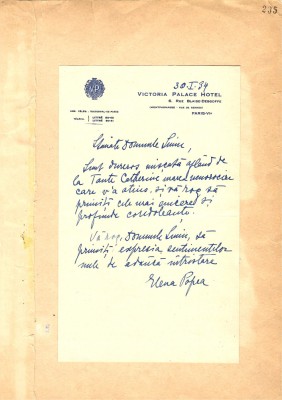 235
30.I.34
VICTORIA PALACE HOTEL
6, RUE BLAISE-DESGOFFE
PARIS-VI
VPH
Stimate Domnule Simu,
Sunt dureros mișcată aflând de
la Tante Catherine marea nenorocire
care v'a atins, și vă rog să
primiți cele mai sincere și
profunde condoleanțe.
Vă rog, Domnule Simu, să
primiți expresia sentimentelor
mele de adâncă întristare
Elena Popea